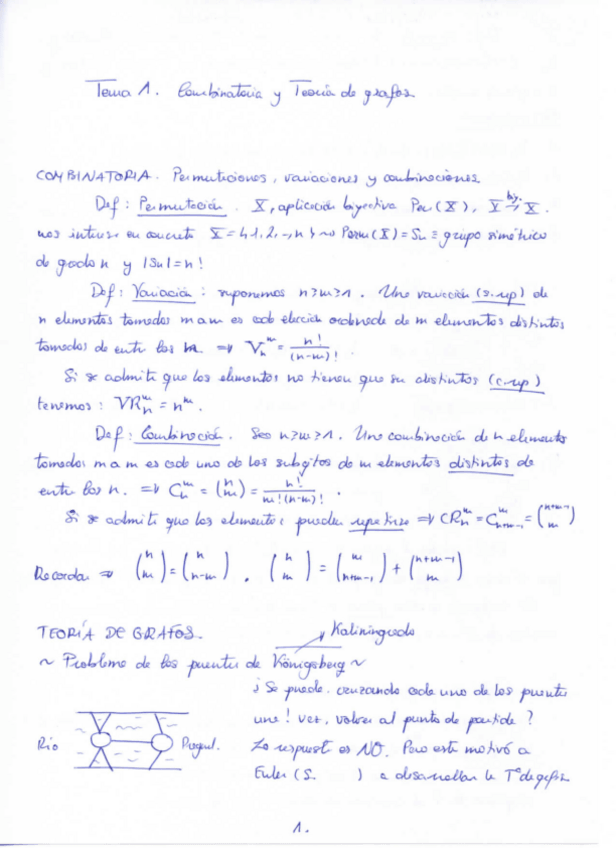 Tema 1. Combinatoria y Teoría de grafos.
COMBINATORIA. Permutaciones, variaciones y combinaciones.
Def: Permutación. X, aplicación biyectiva Per(X), X →biy. X.
nos interesa en concreto X={1,2,..,n} ⇝ Perm(X)=Sn ≡ grupo simétrico
de grado n y |Sn|=n!
Def: Variación: suponemos n≥m≥1. Una variación (s.rep) de
n elementos tomados m a m es cada elección ordenada de m elementos distintos
tomados de entre los n. ⇒ V_n^m = n!/(n-m)!.
Si se admite que los elementos no tienen que ser distintos (c.rep)
tenemos: VR_n^m = n^m.
Def: Combinación. Sea n≥m≥1. Una combinación de n elementos
tomados m a m es cada uno de los subcjtos de m elementos distintos de
entre los n. ⇒ C_n^m = (n m) = n!/m!(n-m)!.
Si se admite que los elementos pueden repetirse ⇒ CR_n^m = C_{n+m-1}^m = (n+m-1 m)
Recordar ⇒ (n m) = (n n-m), (n m) = (m n+m-1) + (n+m-1 m)
TEORÍA DE GRAFOS.
Kaliningrado
~ Problema de los puentes de Königsberg ~
¿Se puede, cruzando cada uno de los puentes
una! vez, volver al punto de partida?
Río Pregel.
La respuesta es NO. Pero esto motivó a
Euler (S. ) a desarrollar la Tª de grafos
1.